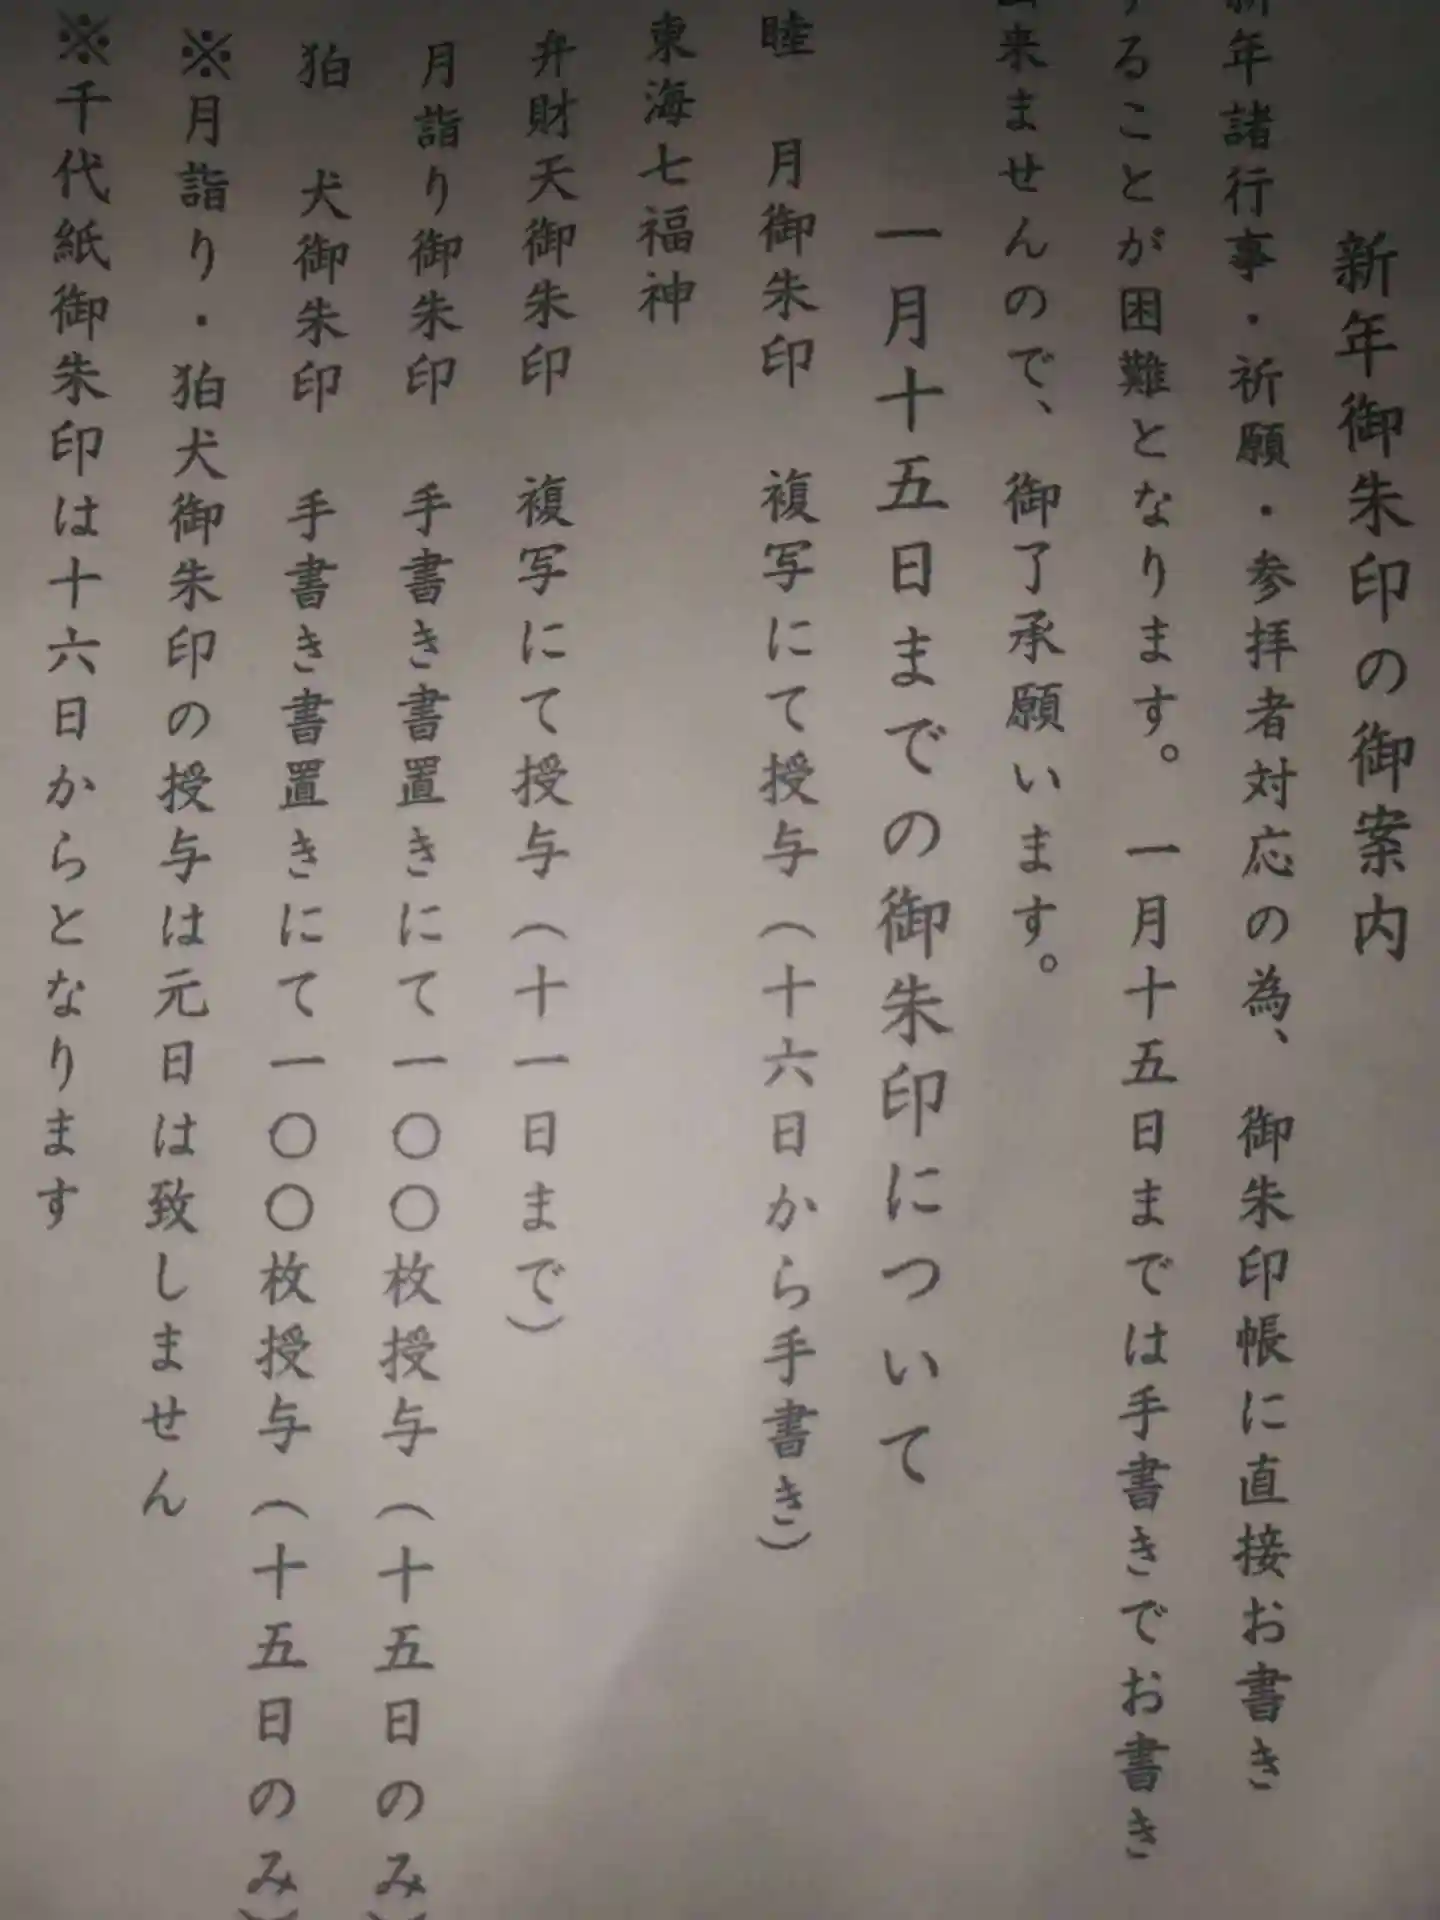 新年御朱印の御案内
新年諸行事・祈願・参拝者対応の為、御朱印帳に直接お書き
することが困難となります。 一月十五日までは手書きでお書き
出来ませんので、御了承願います。
一月十五日までの御朱印について
睦 月御朱印 複写にて授与(十六日から手書き)
東海七福神
弁財天御朱印 複写にて授与(十一日まで)
月詣り御朱印 手書き書置きにて一〇〇枚授与(十五日のみ)
狛 犬御朱印 手書き書置きにて一〇〇枚授与(十五日のみ)
※月詣り・狛犬御朱印の授与は元日は致しません
※千代紙御朱印は十六日からとなります